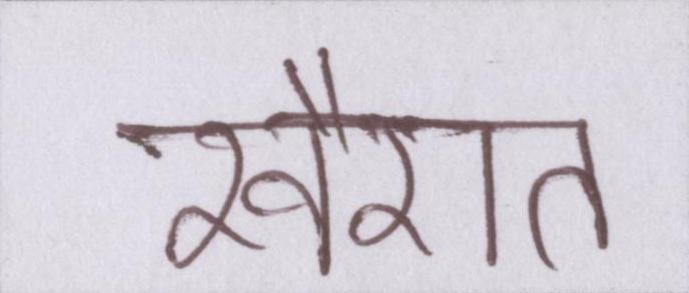 खैरात